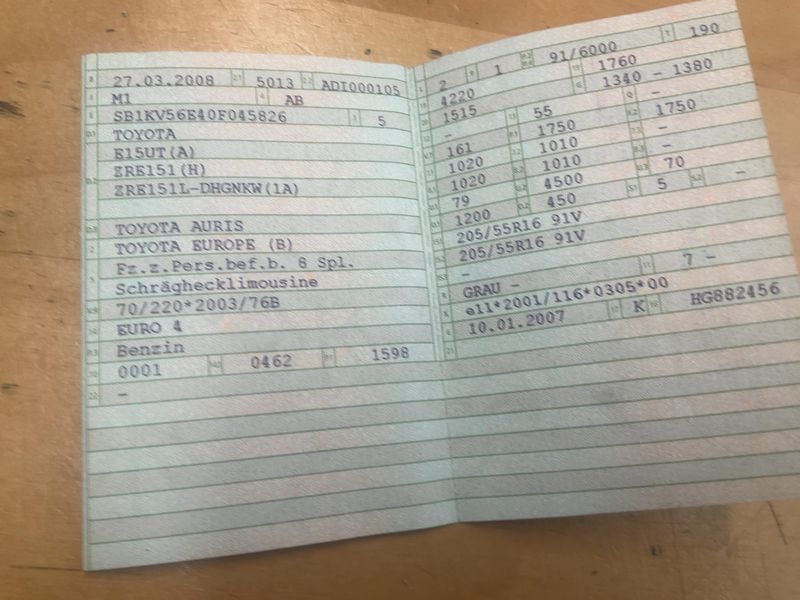 27.03.2008 5013 ADT000105
M1 AB
SB1KV56E40F045826 5
TOYOTA
E15UT(A)
ZRE151(H)
ZRE151L-DHGNKW(1A)
TOYOTA AURIS
TOYOTA EUROPE (B)
Fz.z.Pers.bef.b. 8 Spl.
Schräghecklimousine
70/220*2003/76B
EURO 4
Benzin
0001 0462 1598
–
2 1 91/6000 190
4220 1760
1515 1340 - 1380
– 55 –
161 1750 1750
1020 1010 –
1020 1010 –
79 4500 70
1200 450 5 –
205/55R16 91V
205/55R16 91V
–
GRAU – 7 –
e11*2001/116*0305*00
10.01.2007 K HG882456